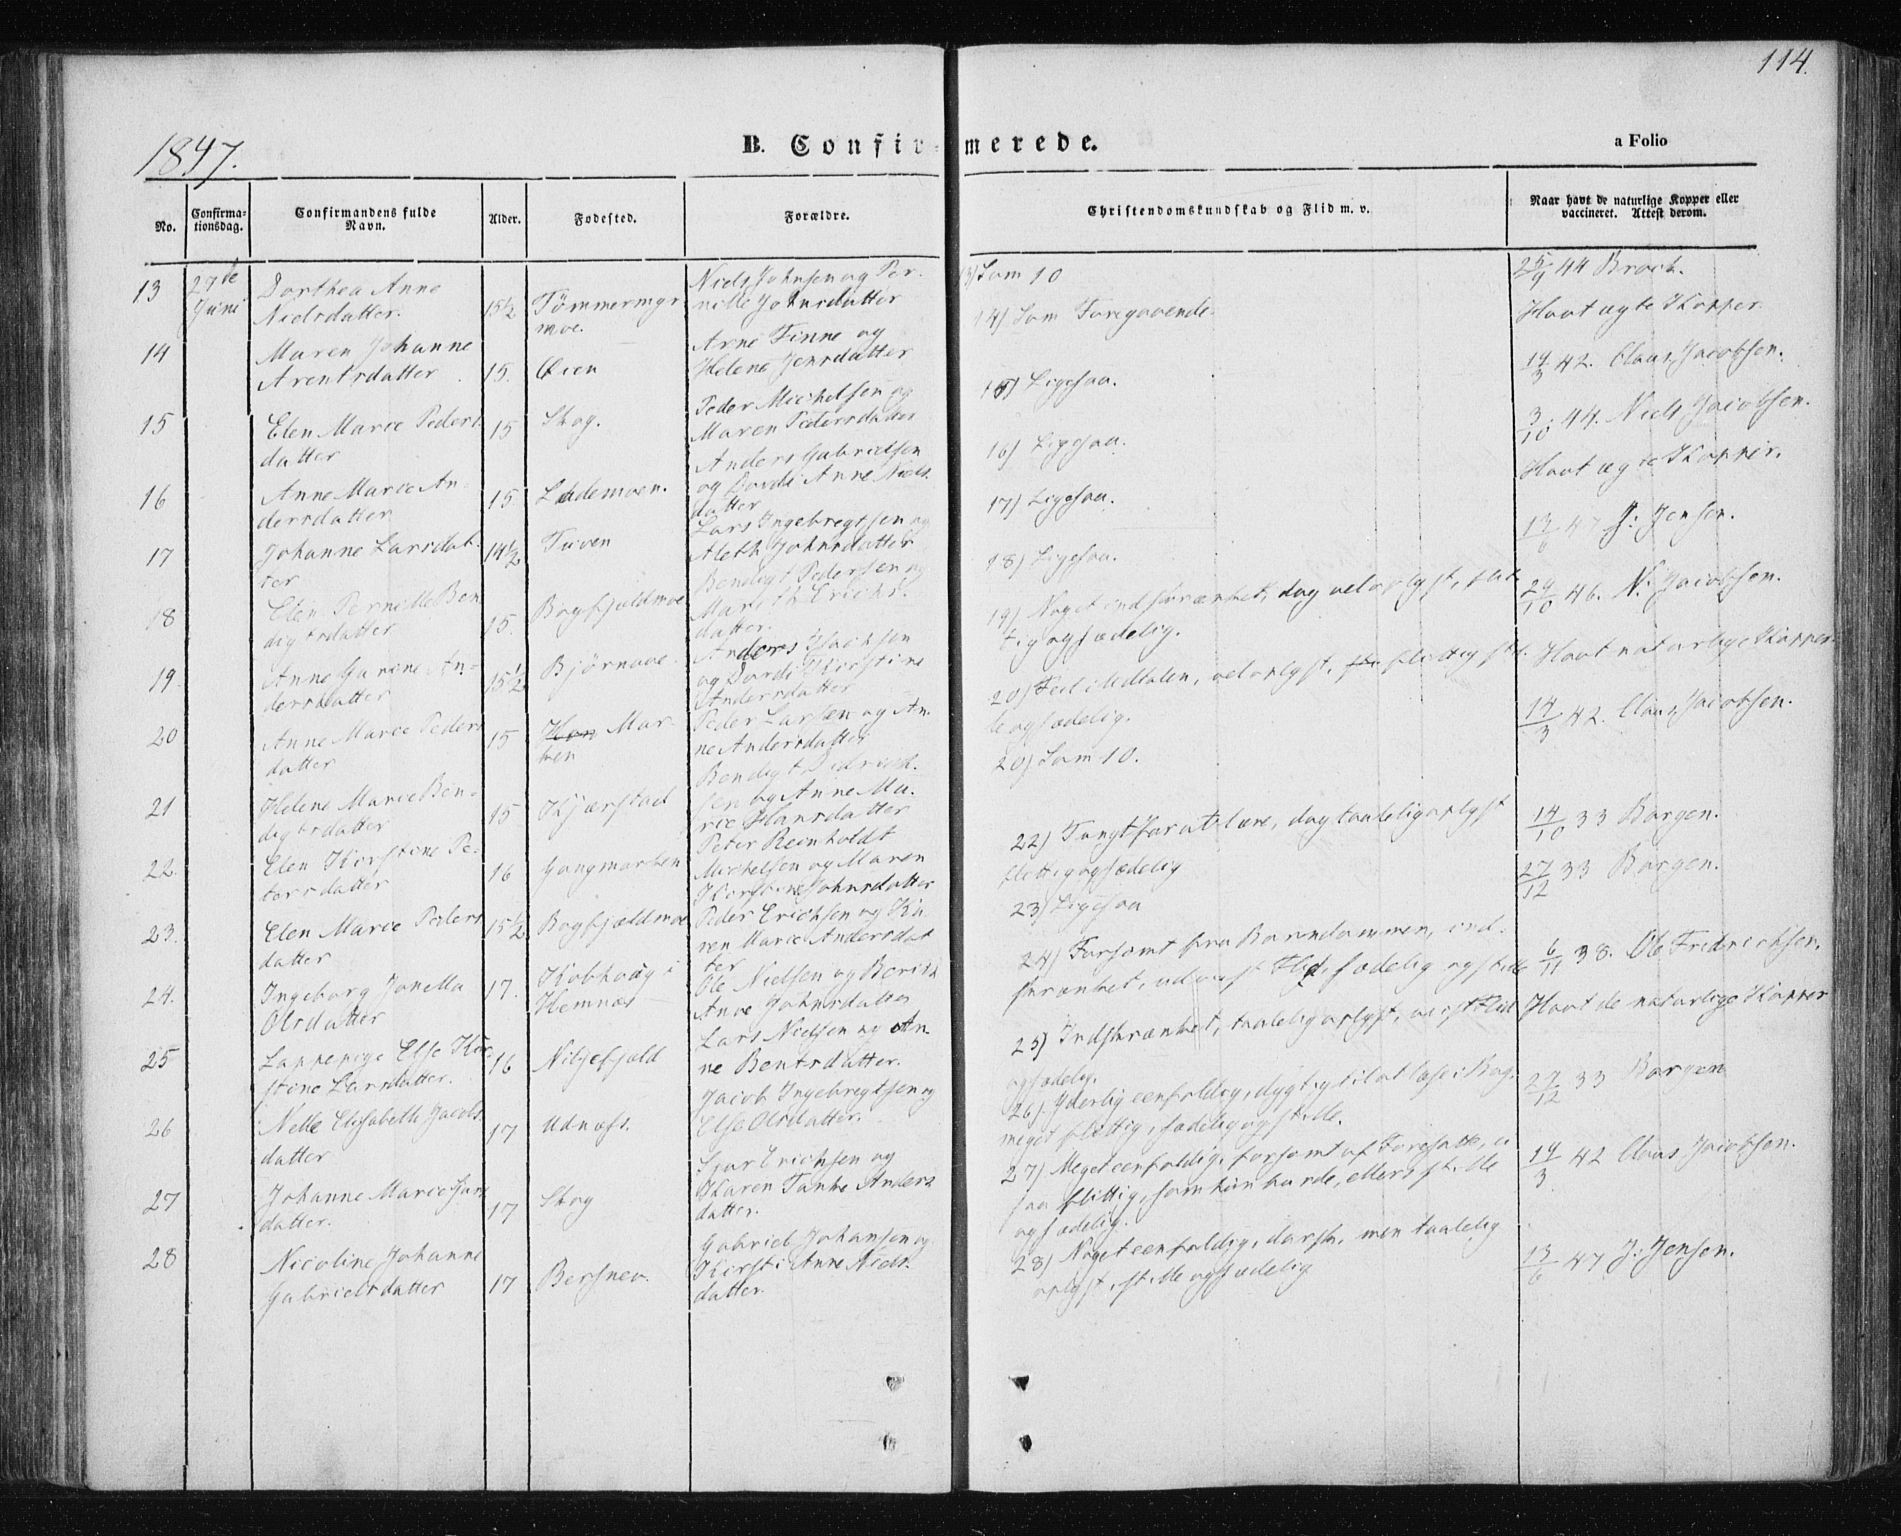 114.
1847.
B. Confirmerede.
a Folio
No.
Confirma-
tionsdag.
Confirmandens fulde
Navn.
Alder.
Fødested.
Forældre.
Christendomskundskab og Flid m. v.
Naar havt de naturlige Kopper eller
vaccineret. Attest derom.
13
27de
Juni
Dorthea Anne
Nielsdatter.
15½
Tømmermyr
moe.
Niels Johnsen og Per-
nille Johnsdatter
13) Som 10
25/9 44 Broch.
14
Maren Johanne
Arentsdatter
15.
Øien
Arne Finne og
Helene Jensdatter
14) Som Foregaaende.
Havt ægte Kopper.
15
Elen Marie Peders
datter
15
Skog.
Peder Michelsen og
Maren Pedersdatter
15) Ligesaa.
14/3 42. Claus Jacobsen.
16
Anne Marie An-
dersdatter
15
Lademoen.
Anders Gabrielsen
og Dordi Anne Niels-
datter
16) Ligesaa.
3/10. 44. Niels Jacobsen.
17
Johanne Larsdat-
ter
14½
Tuven
Lars Ingebregtsen og
Aleth Johnsdatter
17) Ligesaa.
Havt ægte Kopper.
18
Elen Pernille Ben
digtsdatter
15.
Bagfjeldmoe
Bendigt Pedersen og
Mareth Erichs-
datter.
18) Ligesaa.
13/6 47 J: Jensen.
19.
Anne Gurine An-
dersdatter
15½
Bjørnaae.
Anders Isachsen
og Dordi Kirstine
Andersdatter
19) Noget indskrænket, dog vel oplyst, flit-
tig og sædelig.
24/10 46. N: Jacobsen.
20
Anne Marie Peders
datter
15
Mar-
ken
Peder Larsen og An-
ne Andersdatter
20) Feil i Udtalen, vel oplyst, flittig stil-
le og sædelig.
Havt naturlige Kopper.
21
Helene Marie Ben-
digtsdatter
15
Kjærstad
Bendigt
sen og Anne Ma-
rie Hansdatter
20) Som 10.
14/3 42. Claus Jacobsen.
22.
Elen Kirstine Pe-
tersdatter
16
Gangmarken
Peter Reinholdt
Michelsen og Maren
Kirstine Johnsdatter
22) Tungt for at lære, dog taaleligoplyst
flittig og sædelig
14/10 33 Borgen.
23.
Elen Marie Peders
datter
15½
Bagfjældmoe
Peder Erichsen og Ka-
ren Marie Andersdat
ter
23) Ligesaa
27/12 33 Borgen.
24.
Ingeborg Jonella
Olsdatter
17.
Kobhoug i
Hemnæs
Ole Nielsen og Berith
Anne Johnsdatter
24) Forsømt fra Barndommen, ind-
skrænket, udviist Flid, sædelig og stille
6/11 38. Ole Fredrichsen.
25
Lappepige Else Kir
stine Larsdatter.
16
Niljefjeld
Lars Nielsen og An-
ne Bentsdatter.
25) Indskrænket, taalelig oplyst, viist Flid
og sædelig.
Havt de naturlige Kopper
26
Nelle Elisabeth Jacobs-
datter
17
Udnæss.
Jacob Ingebregtsen og
Else Olsdatter.
26) Yderlig eenfoldig, dygtig til at læse i Bog.
meget flittig, sædelig og stille.
27/12 33 Borgen
27
Johanne Marie Sjurs
datter.
17
Skog
Sjur Erichsen og
Karen Tanke Anders
datter.
27) Meget eenfoldig, forsømt af Foresatte,
saa flittig, som hun burde, ellers stille
og sædelig.
14/3 42 Claus Jacobsen.
28
Nicoline Johanne
Gabrielsdatter
17
Gabriel Johansen og
Kirsti Anne Niels-
datter.
28) Noget eenfoldig, dorsk, men taalelig
oplyst, stille og sædelig
13/6 47 J: Jensen.